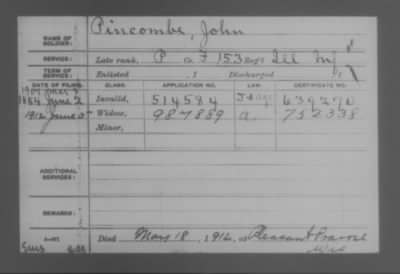 Pincombe, John
NAME OF SOLDIER:
SERVICE: Late rank, P Co. F 153 Reg't Ill Inf
TERM OF SERVICE: Enlisted , 1 Discharged , 1
DATE OF FILING. CLASS. APPLICATION NO. LAW. CERTIFICATE NO.
1884 June 2 Invalid, 514584 639270
1912 June 5 Widow, 987889 a. 752338
Minor,
ADDITIONAL SERVICES:
REMARKS:
Died Mar 18, 1912, at Pleasant Prairie
Wis